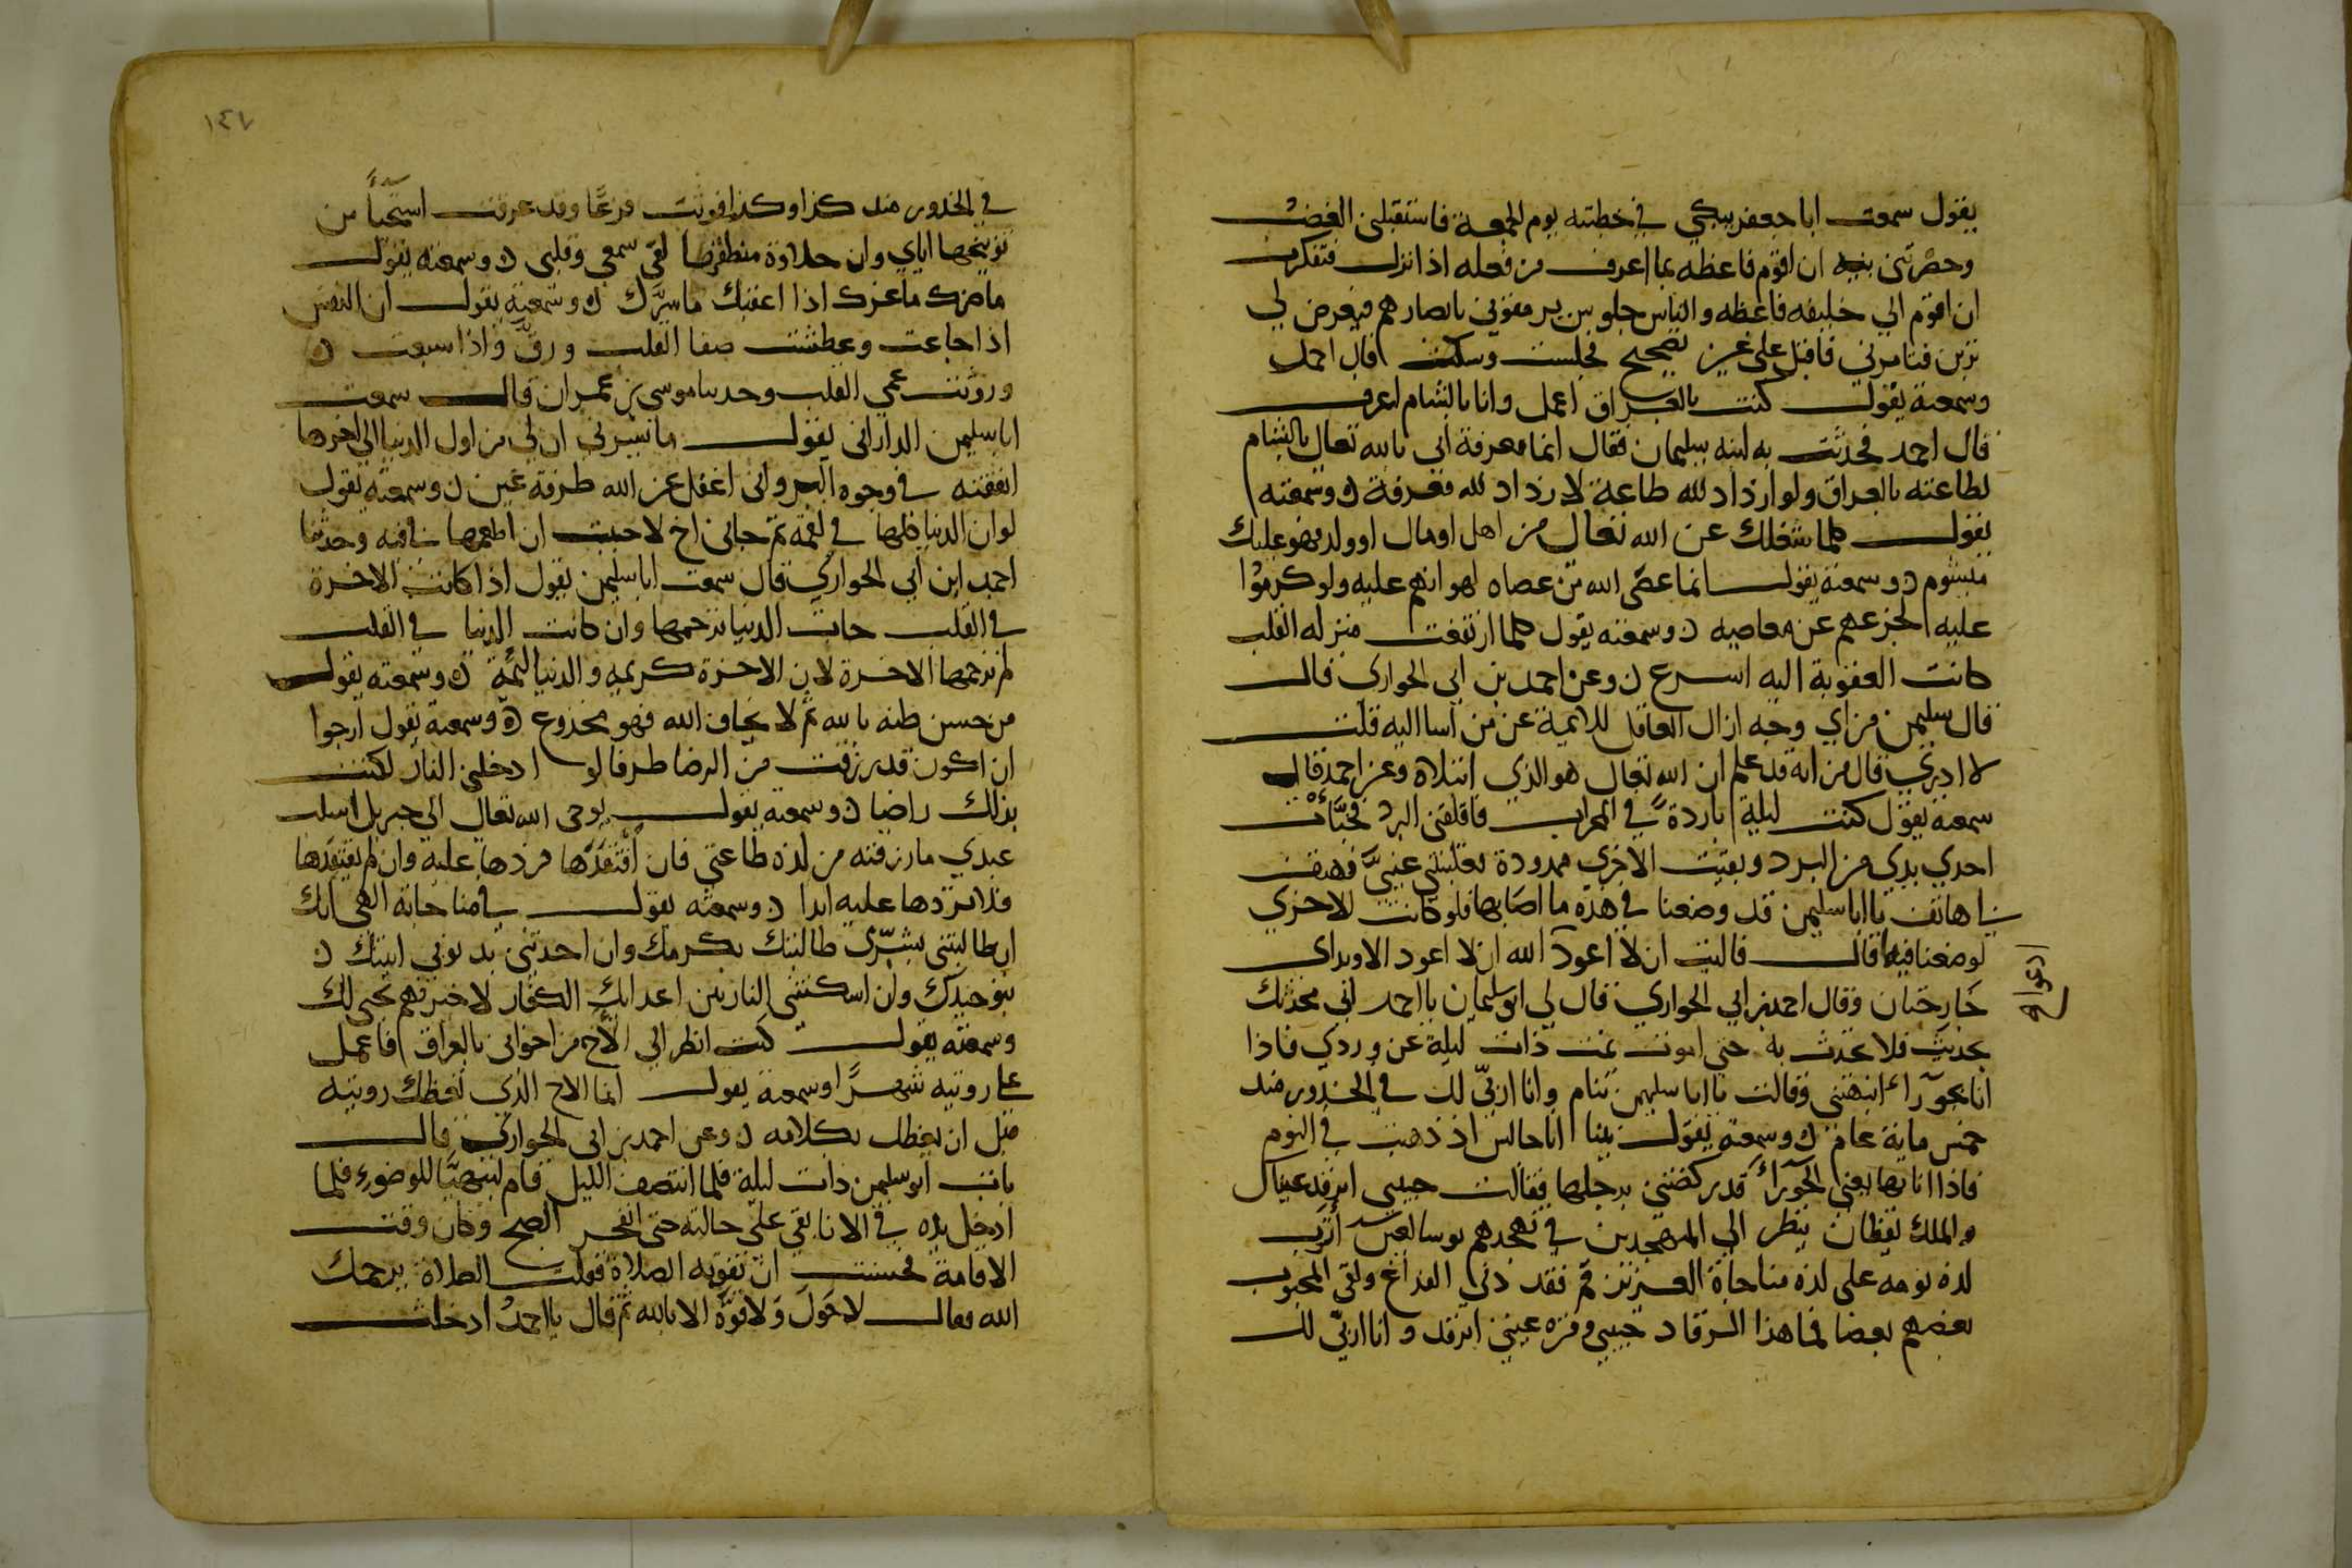 يقول سمعت ابا جعفر يبكي في خطبته يوم الجمعة فاستقبلني الغضب
وحضرتني نية ان اقوم فاعظه بما اعرف من فعله اذا نزل فتفكرت
ان اقوم الي خليفه فاعظه والناس جلوس يرمقوني بابصارهم فيعرض لي
تزين فيامرني فاقتل علي غير تصحيح فجلست وسكت قال احمد
وسمعته يقول كنت بالعراق اعمل وانا بالشام اعرف
قال احمد فحدثت به ابنه سليمان فقال انما معرفة ابي بالله تعالى بالشام
لطاعته بالعراق ولو ازداد لله طاعة لازداد لله معرفة ن وسمعته
يقول كلما شغلك عن الله تعالى من اهل او مال او ولد فهو عليك
مشوم ن وسمعته يقول انما عصى الله من عصاه لهوانهم عليه ولو كرموا
عليه لحجزهم عن معاصيه ن وسمعته يقول كلما ارتفعت منزله القلب
كانت العقوبة اليه اسرع ن وعن احمد بن ابي الحواري قال
قال سليمن من اي وجه ازال العاقل للايمة عن من اسا اليه قلت
لا ادري قال من انه قد علم ان الله تعالى هو الذي ابتلاه وعن احمد قال
سمعته يقول كنت ليلة باردة في المحراب فاقلقني البرد فخبأت
احدي يدي من البرد وبقيت الاخري ممدودة فغلبتني عيني فهتف
بي هاتف يا ابا سليمن قد وضعنا في هذه ما اصابها فلو كانت الاخري
لوضعنا فيها قال فاليت ان لا اعود الله ان لا اعود الا ويداي
خارجتان وقال احمد بن ابي الحواري قال لي ابو سليمان يا احمد اني محدثك
بحديث فلا تحدث به حتي اموت نمت ذات ليلة عن وردي فاذا
انا بحوراء انبهتني وقالت يا ابا سليمن تنام وانا اربي لك في الخدور منذ
خمس ماية عام ن وسمعته يقول بينا انا جالس اذ ذهب بي النوم
فاذا انا بها يعني الحوراء قد ركضتني برجلها فقالت حبيبي اترقد عيناك
والملك يقظان ينظر الي المتهجدين في تهجدهم بوسا لعين اثرت
لذه نومه على لذه مناجاة العزيز قم فقد دني الفراغ ولقي المحبوب
بعضهم بعضا فما هذا الرقاد حبيبي وقره عيني اترقد وانا اربي لك
١٤٧
في الخدور منذ كذا وكذا فوثبت فزعا وقد عرقت استحياً من
توبيخها اياي وان حلاوة منطقها لفي سمعي وقلبي ن وسمعته يقول
ما ضرك ما غرك اذا اعقبك ما سرك ن وسمعته يقول ان النفس
اذا جاعت وعطشت صفا القلب ورق واذا شبعت ن
ورويت عمي القلب وحدثنا موسى بن عمران قال سمعت
ابا سليمن الداراني يقول ما يسرني ان لي من اول الدنيا الي اخرها
انفقته في وجوه البر واني اغفل عن الله طرفة عين ن وسمعته يقول
لو ان الدنيا كلها في لقمة ثم جاني اخ لاحببت ان اطعمها في فيه وحدثنا
احمد ابن ابي الحواري قال سمعت ابا سليمن يقول اذا كانت الاخرة
في القلب جات الدنيا تزحمها وان كانت الدنيا في القلب
لم تزحمها الاخرة لان الاخرة كريمه والدنيا لئيمة ن وسمعته يقول
من حسن ظنه بالله ثم لا يخاف الله فهو مخدوع ن وسمعته يقول ارجوا
ان اكون قد رزقت من الرضا طرفا لو ادخلني النار لكنت
بذلك راضيا ن وسمعته يقول يوحى الله تعالى الي جبريل اسلب
عبدي ما رزقته من لذه طاعتي فان افتقدها فردها عليه وان لم يفتقدها
فلا تردها عليه ابدا ن وسمعته يقول في مناجاته الهي انك
ان طالبتني بشري طالبتك بكرمك وان اخذتني بذنوبي اتيتك ن
بتوحيدك وان اسكنتني النار بين اعدايك الكفار لاخبرتهم بحبي لك
وسمعته يقول كنت انظر الي الأخ من اخواني بالعراق فاعمل
على رويته شهراً وسمعته يقول انما الاخ الذي يعظك رويته
قبل ان يعظك بكلامه ن وعن احمد بن ابي الحواري قال
بات ابو سليمن ذات ليلة فلما انتصف الليل قام ليتهيأ للوضوء فلما
ادخل يده في الانا بقي على حالته حتى انفجر الصبح وكان وقت
الاقامة فخشيت ان تفوته الصلاة فقلت الصلاة يرحمك
الله فقال لا حول ولا قوة الا بالله ثم قال يا احمد ادخلت